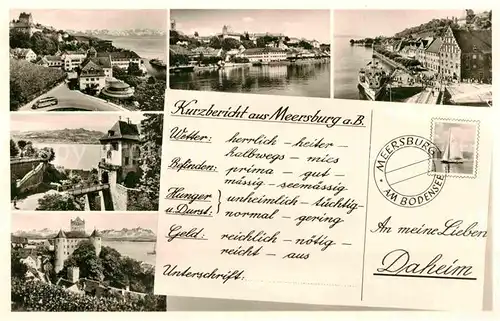 Kurzbericht aus Meersburg a.B.
Wetter: herrlich – heiter –
halbwegs – mies
Befinden: prima – gut –
mässig – seemässig
Hunger u. Durst: } unheimlich – tüchtig –
normal – gering
Geld: reichlich – nötig –
reicht – aus
Unterschrift:
MEERSBURG
AM BODENSEE
An meine Lieben
Daheim